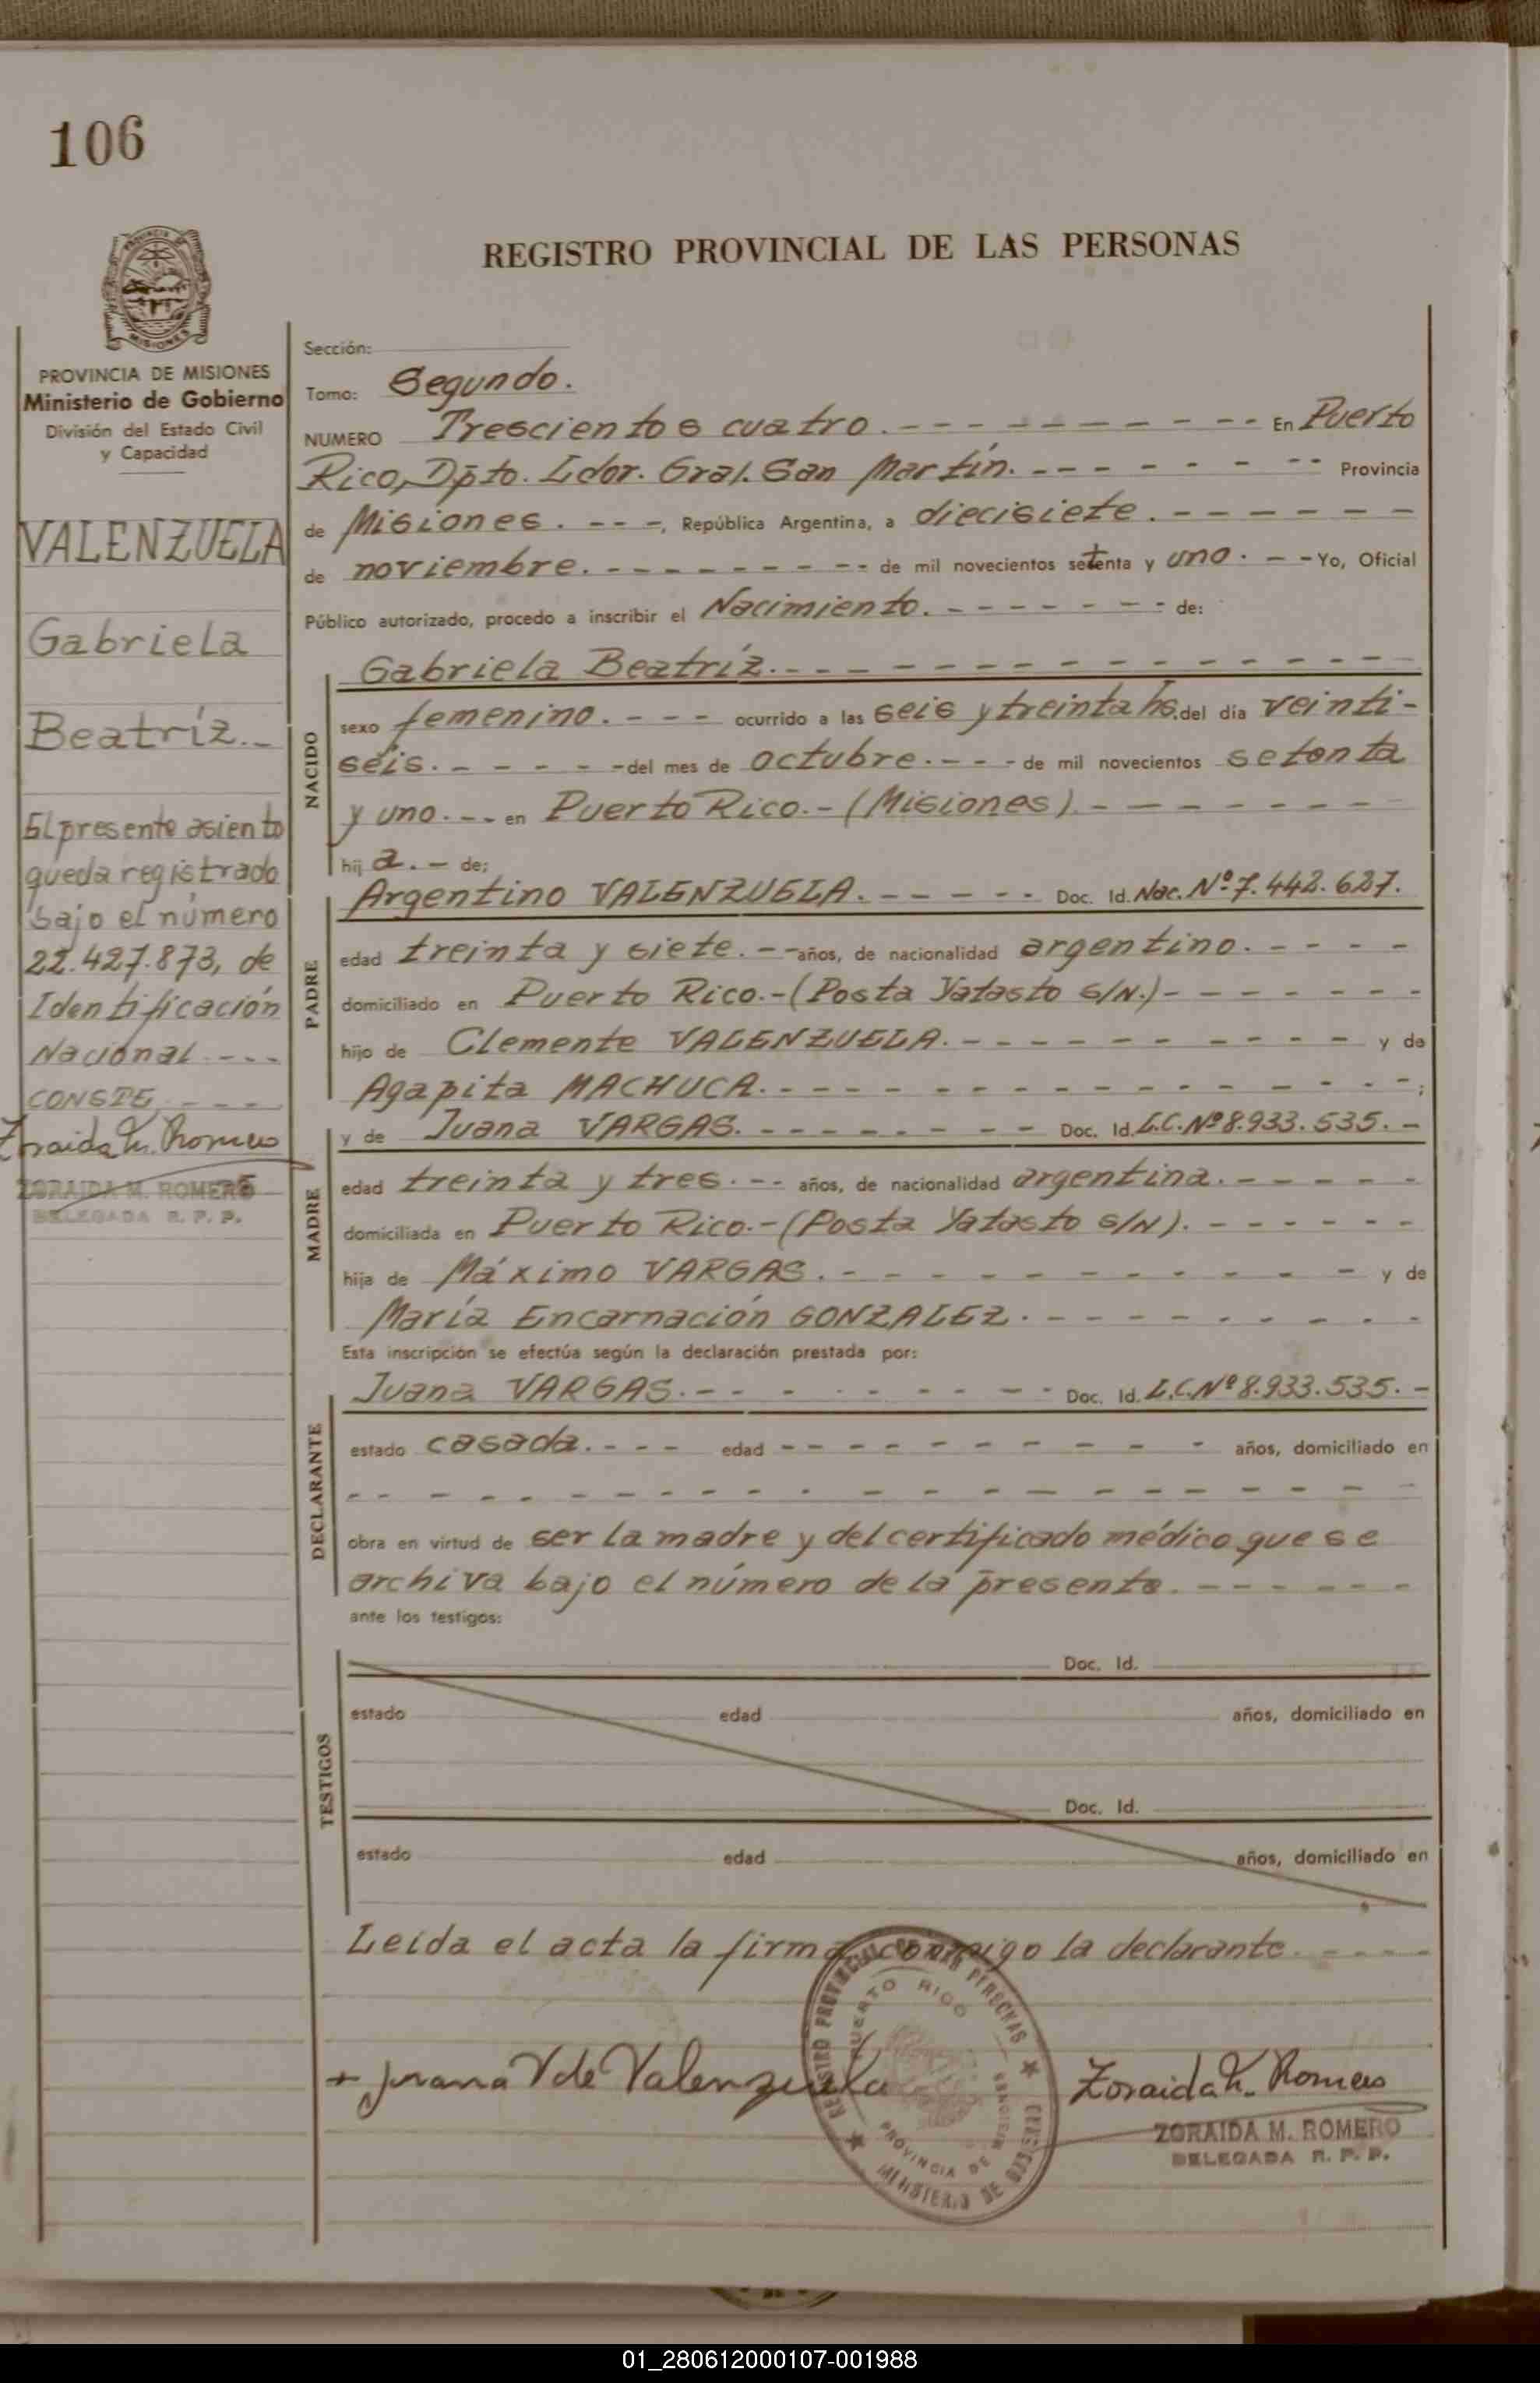 106
REGISTRO PROVINCIAL DE LAS PERSONAS
MISIONES
PROVINCIA DE MISIONES
Ministerio de Gobierno
División del Estado Civil
y Capacidad
VALENZUELA
Gabriela
Beatríz.-
El presente asiento
queda registrado
bajo el número
22.427.873, de
Identificación
Nacional ---
CONSTE, ---
Zoraida M. Romero
ZORAIDA M. ROMERO
DELEGADA R. P. P.
Sección:
Tomo: Segundo.
NUMERO Trescientos cuatro. - - - - - - - - - En Puerto
Rico, Dpto. Ldor. Gral. San Martín. - - - - - - - Provincia
de Misiones. - - -, República Argentina, a diecisiete. - - - - - -
de noviembre. - - - - - - - - - de mil novecientos setenta y uno. - - Yo, Oficial
Público autorizado, procedo a inscribir el Nacimiento. - - - - - - - de:
NACIDO
Gabriela Beatríz. - - - - - - - - - - - - - - -
sexo femenino. - - - ocurrido a las seis y treinta hs. del día veinti-
séis. - - - - - del mes de octubre. - - - de mil novecientos setenta
y uno. - - en Puerto Rico.- (Misiones). - - - - - - - -
hij a. - de;
PADRE
Argentino VALENZUELA. - - - - - Doc. Id. Nac. Nº 7.442.627.
edad treinta y siete. - - años, de nacionalidad argentino. - - - -
domiciliado en Puerto Rico.-(Posta Yatasto s/N.) - - - - - - -
hijo de Clemente VALENZUELA. - - - - - - - - - - y de
Agapita MACHUCA. - - - - - - - - - - - - - - -;
MADRE
y de Juana VARGAS. - - - - - - - - Doc. Id. L.C. Nº 8.933.535. -
edad treinta y tres. - - - años, de nacionalidad argentina. - - - - -
domiciliada en Puerto Rico.-(Posta Yatasto s/N). - - - - - -
hija de Máximo VARGAS. - - - - - - - - - - - - y de
María Encarnación GONZALEZ. - - - - - - - - - -
Esta inscripción se efectúa según la declaración prestada por:
DECLARANTE
Juana VARGAS. - - - - - - - - - Doc. Id. L.C. Nº 8.933.535. -
estado casada. - - - edad - - - - - - - - - - años, domiciliado en
- - - - - - - - - - - - - - - - - - - - - -
obra en virtud de ser la madre y del certificado médico que se
archiva bajo el número de la presente. - - - - - -
ante los testigos:
TESTIGOS
Doc. Id.
estado edad años, domiciliado en
Doc. Id.
estado edad años, domiciliado en
Leída el acta la firma conmigo la declarante. - - - -
REGISTRO PROVINCIAL DE LAS PERSONAS
PUERTO RICO
PROVINCIA DE MISIONES
Juana V de Valenzuela
Zoraida M. Romero
ZORAIDA M. ROMERO
DELEGADA R. P. P.
01_280612000107-001988